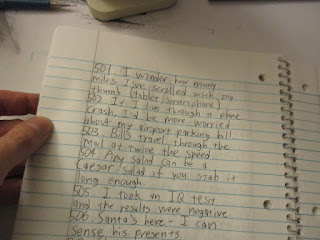 501 I wonder how many
miles I've scrolled with my
thumb (tablet/smartphone)
502 If I live through a plane
crash, I'd be more worried
about my airport parking bill
503 Bills travel through the
mail at twice the speed
504 Any salad can be a
Caesar Salad if you stab it
long enough.
505 I took an IQ test
and the results were negative
506 Santa's here - I can
sense his presents.